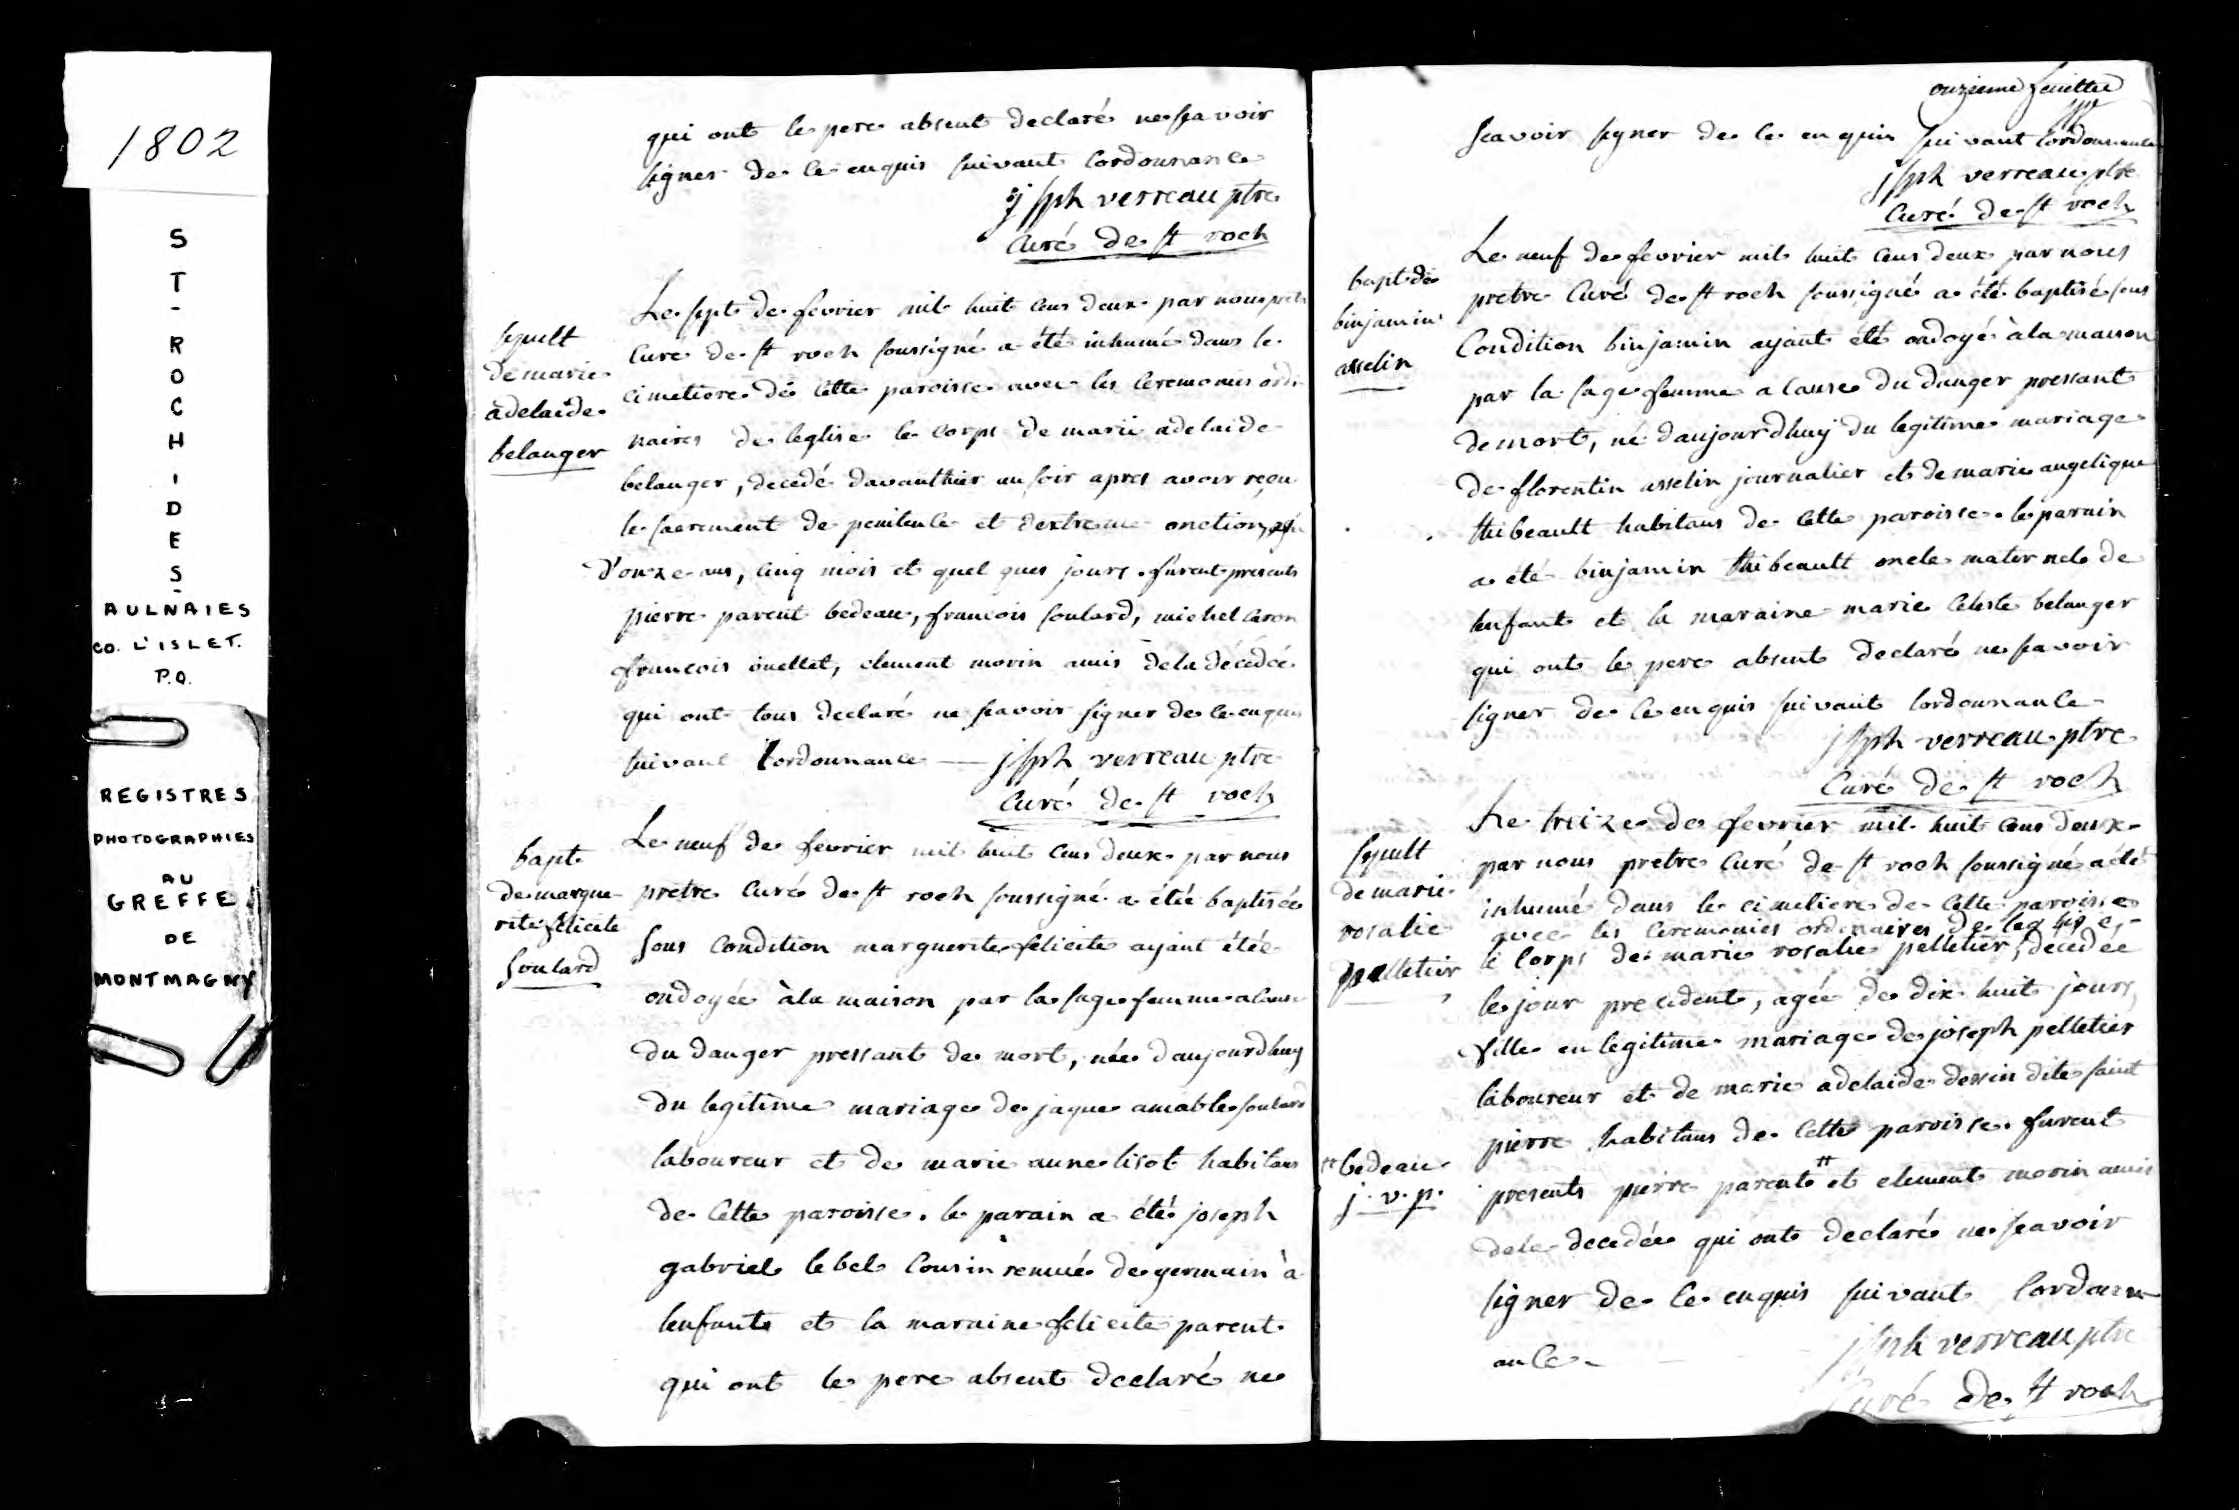 1802
ST-ROCH-DES-
AULNAIES
CO. L'ISLET.
P.Q.
REGISTRES
PHOTOGRAPHIES
AU
GREFFE
DE
MONTMAGNY
qui ont le pere absent declaré ne sçavoir
signer de ce enquis suivant lordonnance
jsph verreau ptre
curé de st roch
sepult
de marie
adelaide
belanger
Le sept de fevrier mil huit cens deux par nous pretre
curé de st roch soussigné a été inhumé dans le
cimetiere de cette paroisse avec les ceremonies ordi
naires de leglise le corps de marie adelaide
belanger, decedé davanthier au soir apres avoir reçu
le sacrement de penitence et dextreme onction,
d'onze ans, cinq mois et quel ques jours. furent presents
pierre parent bedeau, francois soulard, michel caron
francois ouellet, clement morin amis dela décédée
qui ont tous declaré ne scavoir signer de ce enquis
suivant lordonnance — jsph verreau ptre
curé de st roch
bapt
de margue
rite felicite
soulard
Le neuf de fevrier mil huit cens deux par nous
pretre curé de st roch soussigné a étée baptisée
sous condition marguerite felicite ayant étée
ondoyée à la maison par la sage femme a cause
du danger pressant de mort, née d'aujourdhuy
du legitime mariage de jaque amable soulard
laboureur et de marie anne lisot habitans
de cette paroisse. le parain a été joseph
gabriel lebel cousin remué de germain à
lenfant et la maraine felicité parent
qui ont le pere absent declaré ne
onzieme feuillet
jvp
scavoir signer de ce enquis suivant lordonnance
jsph verreau ptre
curé de st roch
bapt de
binjamin
asselin
Le neuf de fevrier mil huit cens deux par nous
pretre curé de st roch soussigné a été baptisé sous
condition binjamin ayant été ondoyé à la maison
par la sage femme a cause du danger pressant
de mort, né d'aujourdhuy du legitime mariage
de florentin asselin journalier et de marie angelique
thibeault habitans de cette paroisse. le parain
a été binjamin thibeault oncle maternel de
lenfant et la maraine marie celeste belanger
qui ont le pere absent declaré ne scavoir
signer de ce enquis suivant lordonnance
jsph verreau ptre
curé de st roch
sepult
de marie
rosalie
pelletier
Le treize de fevrier mil huit cens deux
par nous pretre curé de st roch soussigné a été
inhumé dans le cimetiere de cette paroisse
avec les ceremonies ordinaires de leglise,
le corps de marie rosalie pelletier, decedée
le jour precedent, agée de dix huit jours,
fille en legitime mariage de joseph pelletier
laboureur et de marie adelaide dessin dite saint
pierre habitans de cette paroisse. furent
presents pierre parent # et clement morin amis
# bedeau
j. v. p.
dela decedée qui ont declaré ne scavoir
signer de ce enquis suivant lordonn
ance
jsph verreau ptre
curé de st roch